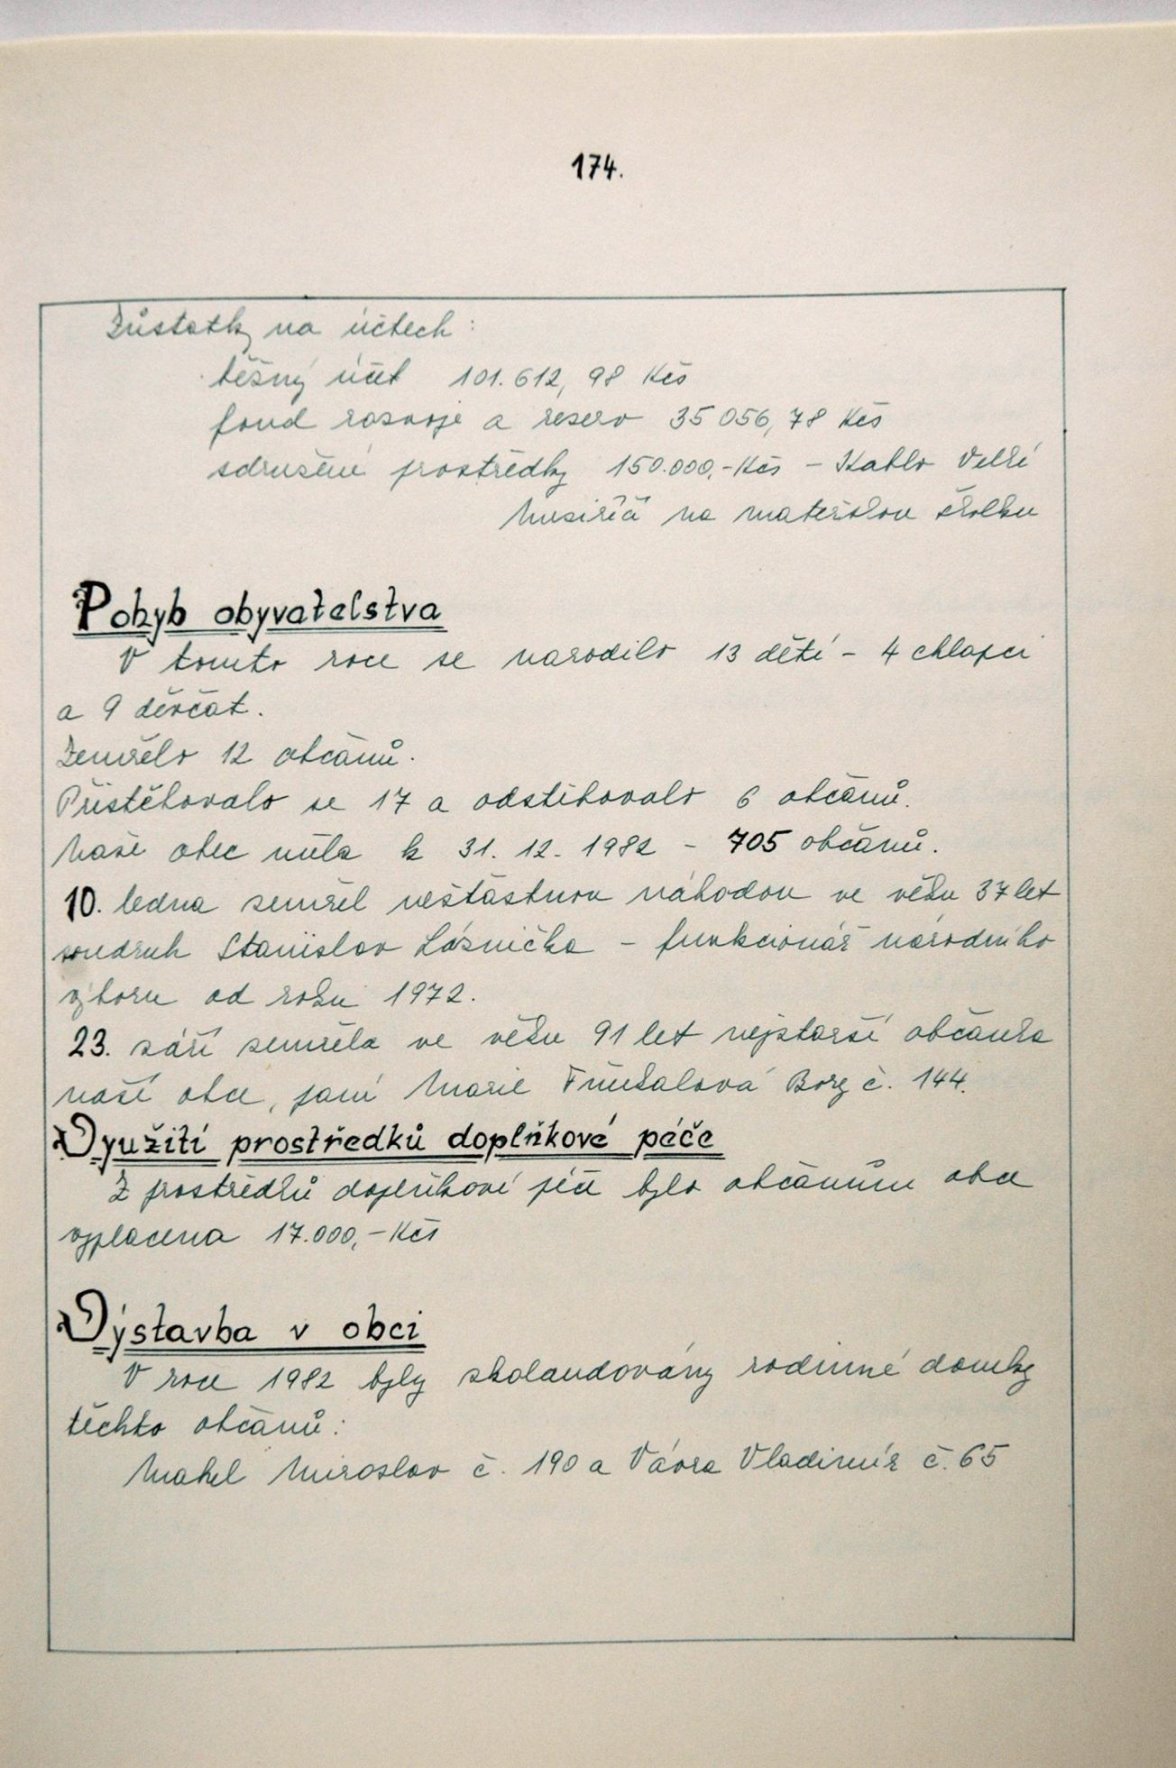 174.
Zůstatky na účtech:
běžný účet 101.612,98 Kčs
fond rozvoje a rezerv 35 056,78 Kčs
sdružené prostředky 150.000,- Kčs - Kablo Velké
Meziříčí na mateřskou školku
Pohyb obyvatelstva
V tomto roce se narodilo 13 dětí - 4 chlapci
a 9 děvčat.
Zemřelo 12 občanů.
Přistěhovalo se 17 a odstěhovalo 6 občanů.
Naše obec měla k 31. 12. 1982 - 705 občanů.
10. ledna zemřel nešťastnou náhodou ve věku 37 let
soudruh Stanislav Láznička - funkcionář národního
výboru od roku 1972.
23. září zemřela ve věku 91 let nejstarší občanka
naší obce, paní Marie Borg č. 144.
Využití prostředků doplňkové péče
Z prostředků doplňkové péče bylo občanům obce
vyplacena 17.000,- Kčs
Výstavba v obci
V roce 1982 byly zkolaudovány rodinné domky
těchto občanů:
Mahel Miroslav č. 190 a Vávra Vladimír č. 65